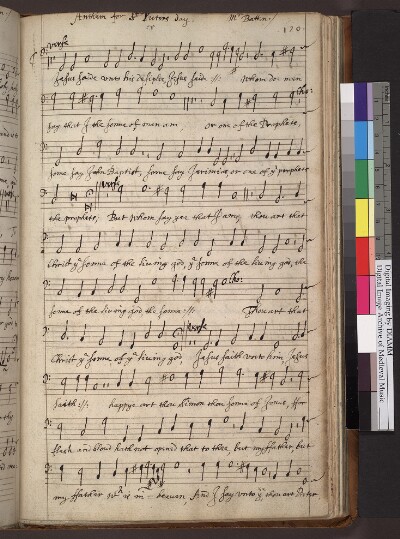 Anthem for St Peters day. Mr Batten.
120.
verse
Jesus saide unto his disciples, Jesus said :||: Whom do men
Cho:
say that I the sonne of man am, or one of the Prophets,
some say John Baptist, some say Jeremias, or one of ye prophets
verse
the prophets, But whom say yee that I am, thou art that
Christ ye sonne of the living god, ye sonne of the living god, the
Cho:
sonne of the living god the sonne :||: Thou art that
verse
Christ ye sonne of ye living god Jesus saith unto him, Jesus
saith :||: happye art thou Simon thou sonne of Jonas, ffor
flesh and bloud hath not opened that to thee, but my ffather but
my ffather wch is in heaven, And I say unto ye, thou art Peter
Digital Imaging by DIAMM
Digital Image Archive of Medieval Music